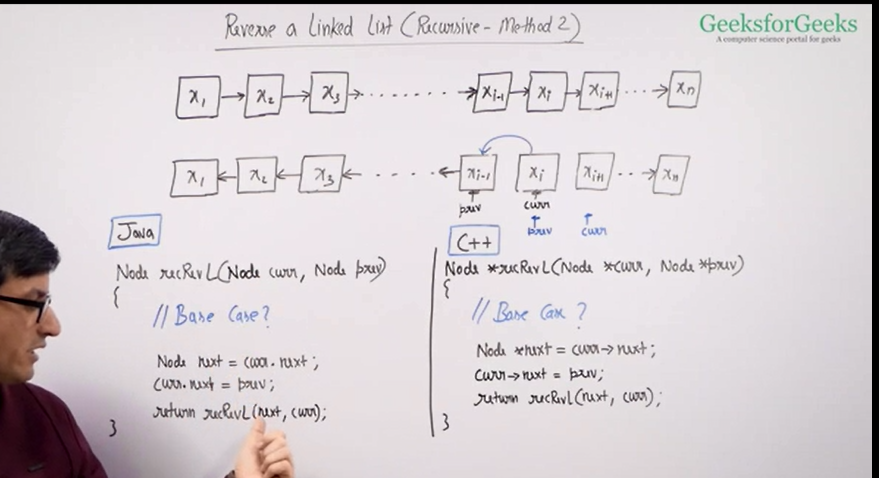 Reverse a Linked List (Recursive - Method 2)
GeeksforGeeks
A computer science portal for geeks
x₁ → x₂ → x₃ → ....... → xᵢ₋₁ → xᵢ → xᵢ₊₁ ... → xₙ
x₁ ← x₂ ← x₃ ← .... ← xᵢ₋₁ xᵢ xᵢ₊₁ .. → xₙ
prev curr
prev curr
Java
Node recRevL(Node curr, Node prev)
{
// Base Case?
Node next = curr.next;
curr.next = prev;
return recRevL(next, curr);
}
C++
Node *recRevL(Node *curr, Node *prev)
{
// Base Case ?
Node *next = curr→next;
curr→next = prev;
return recRevL(next, curr);
}